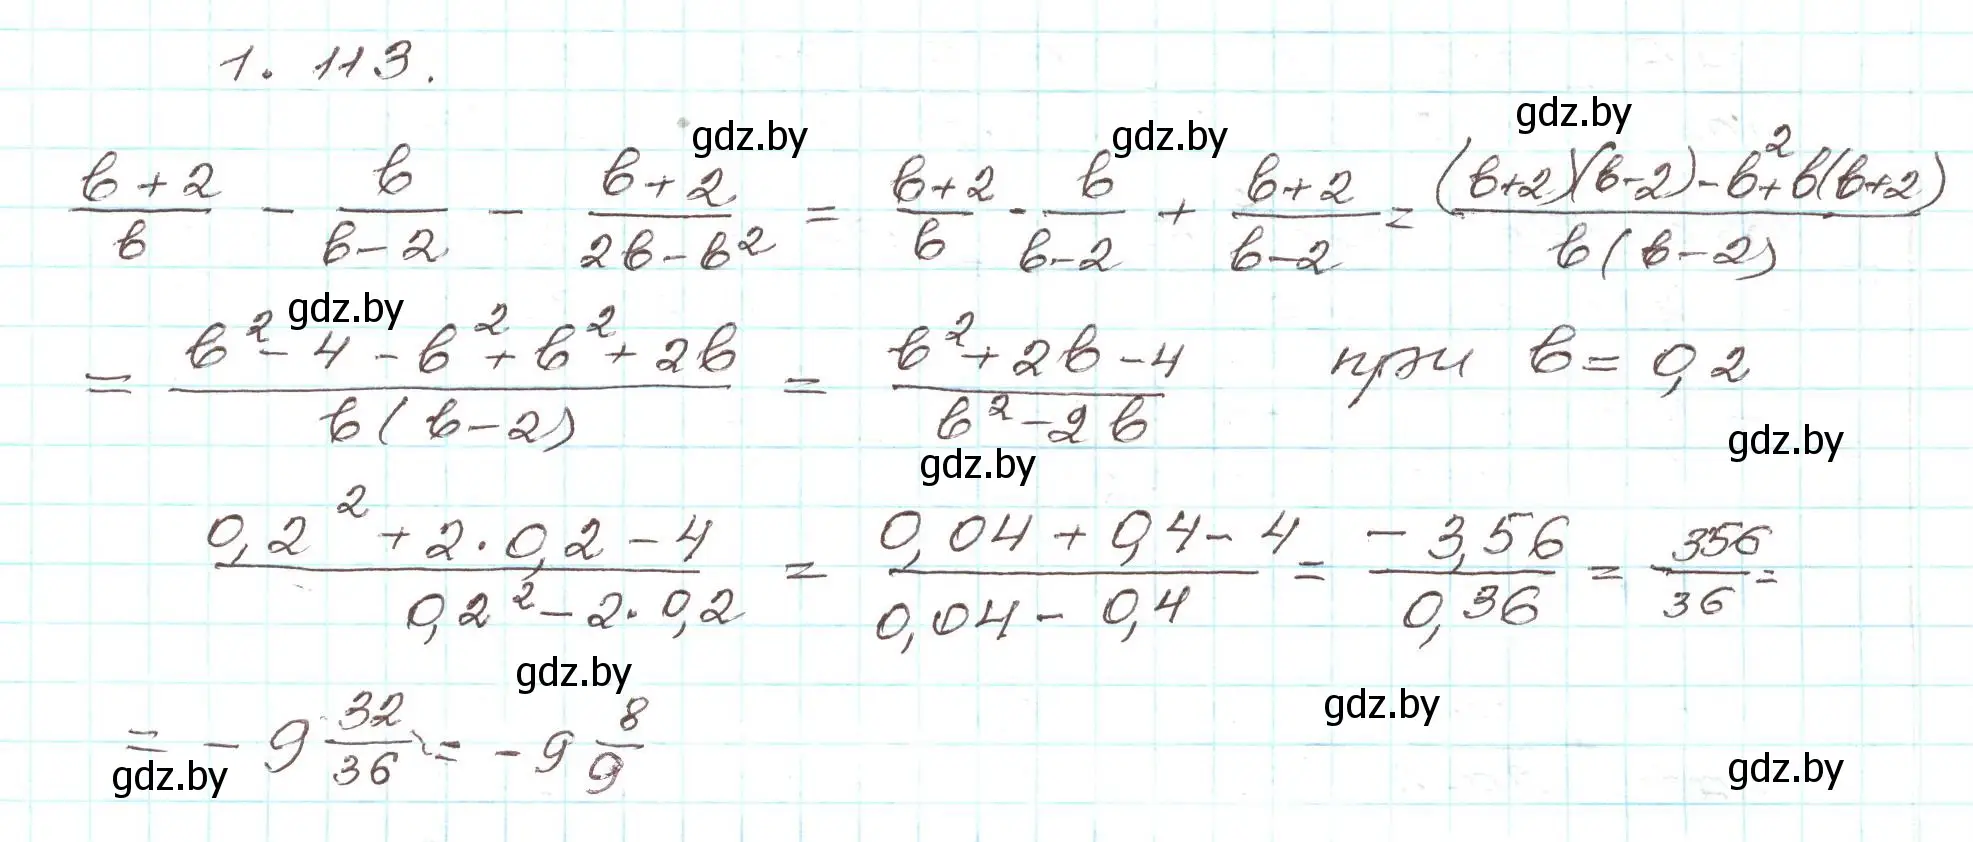 1.113.
gdz.by gdz.by gdz.by
(в+2)/в - в/(в-2) - (в+2)/(2в-в²) = (в+2)/в - в/(в-2) + (в+2)/(в-2) = ((в+2)(в-2)-в²+в(в+2))/(в(в-2))
gdz.by
= (в²-4-в²+в²+2в)/(в(в-2)) = (в²+2в-4)/(в²-2в) при в=0,2
gdz.by gdz.by
(0,2²+2·0,2-4)/(0,2²-2·0,2) = (0,04+0,4-4)/(0,04-0,4) = (-3,56)/(0,36) = -356/36 =
gdz.by gdz.by
= -9 32/36 = -9 8/9
gdz.by gdz.by